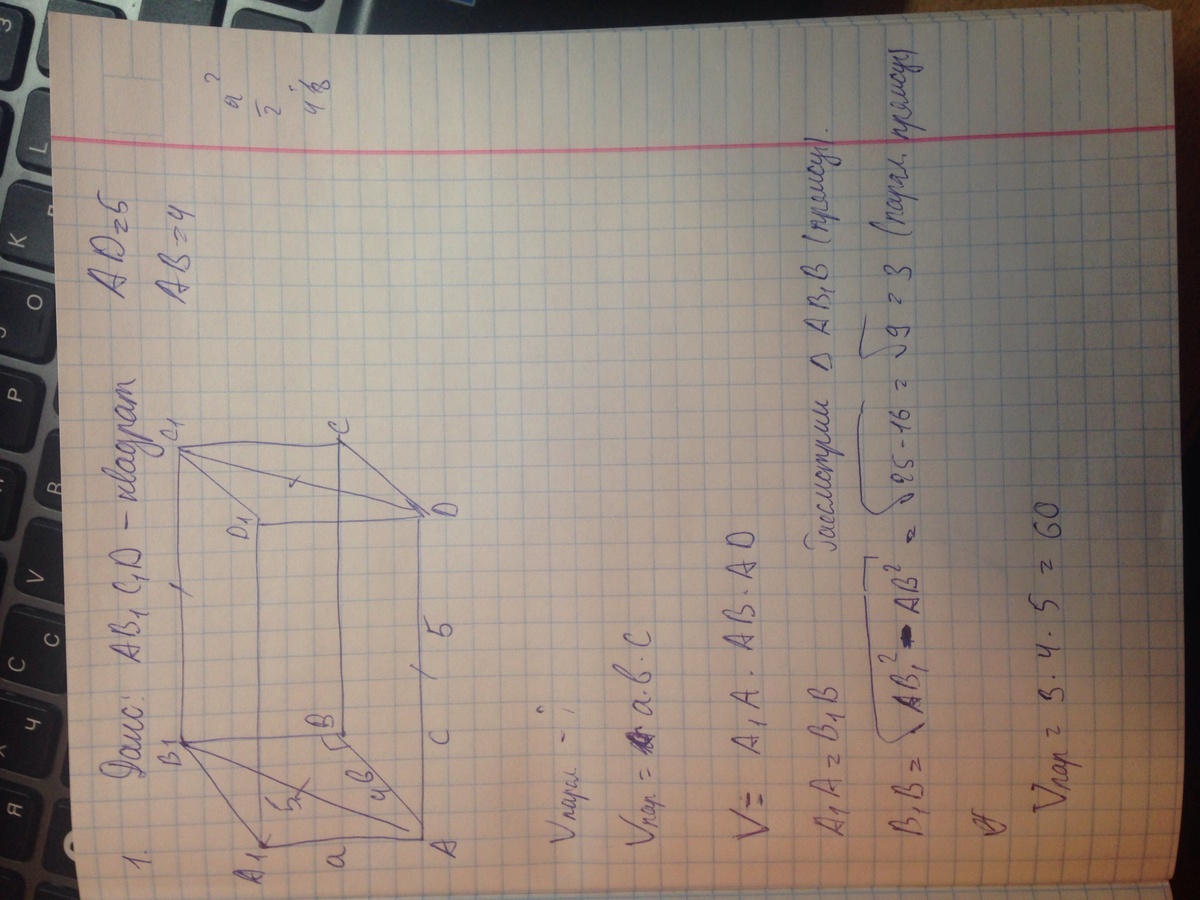 1. Дано: AB₁C₁D – квадрат AD=5
AB=4
a²
2
B₁
C₁
A₁
D₁
5
a
4
в
B
C
A
C
5
D
Vпарал – ?
Vпар = a·в·c
V = A₁A · AB · AD
A₁A = B₁B
Рассмотрим Δ AB₁B (прямоуг).
B₁B = √AB₁² - AB² = √25-16 = √9 = 3 (парал. прямоуг)
Vпар = 3 · 4 · 5 = 60
Я
Ч
С
V
Р
J
О
К
L
З